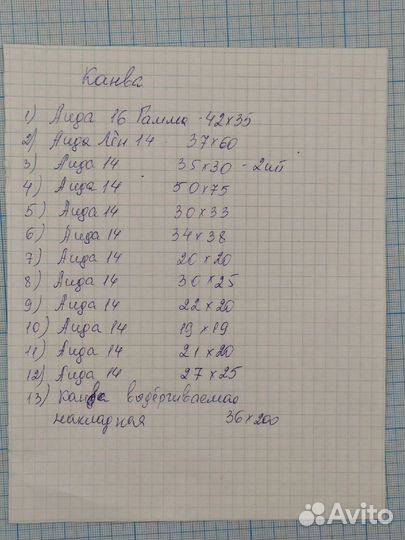 Канва
1) Аида 16 Гамма - 42х35
2) Аида Лён 14 - 37х60
3) Аида 14 35х30 - 2шт
4) Аида 14 50х75
5) Аида 14 30х33
6) Аида 14 34х38
7) Аида 14 20х20
8) Аида 14 30х25
9) Аида 14 22х20
10) Аида 14 19х19
11) Аида 14 21х20
12) Аида 14 27х25
13) Канва выдёргиваемая
накладная 36х200
Avito